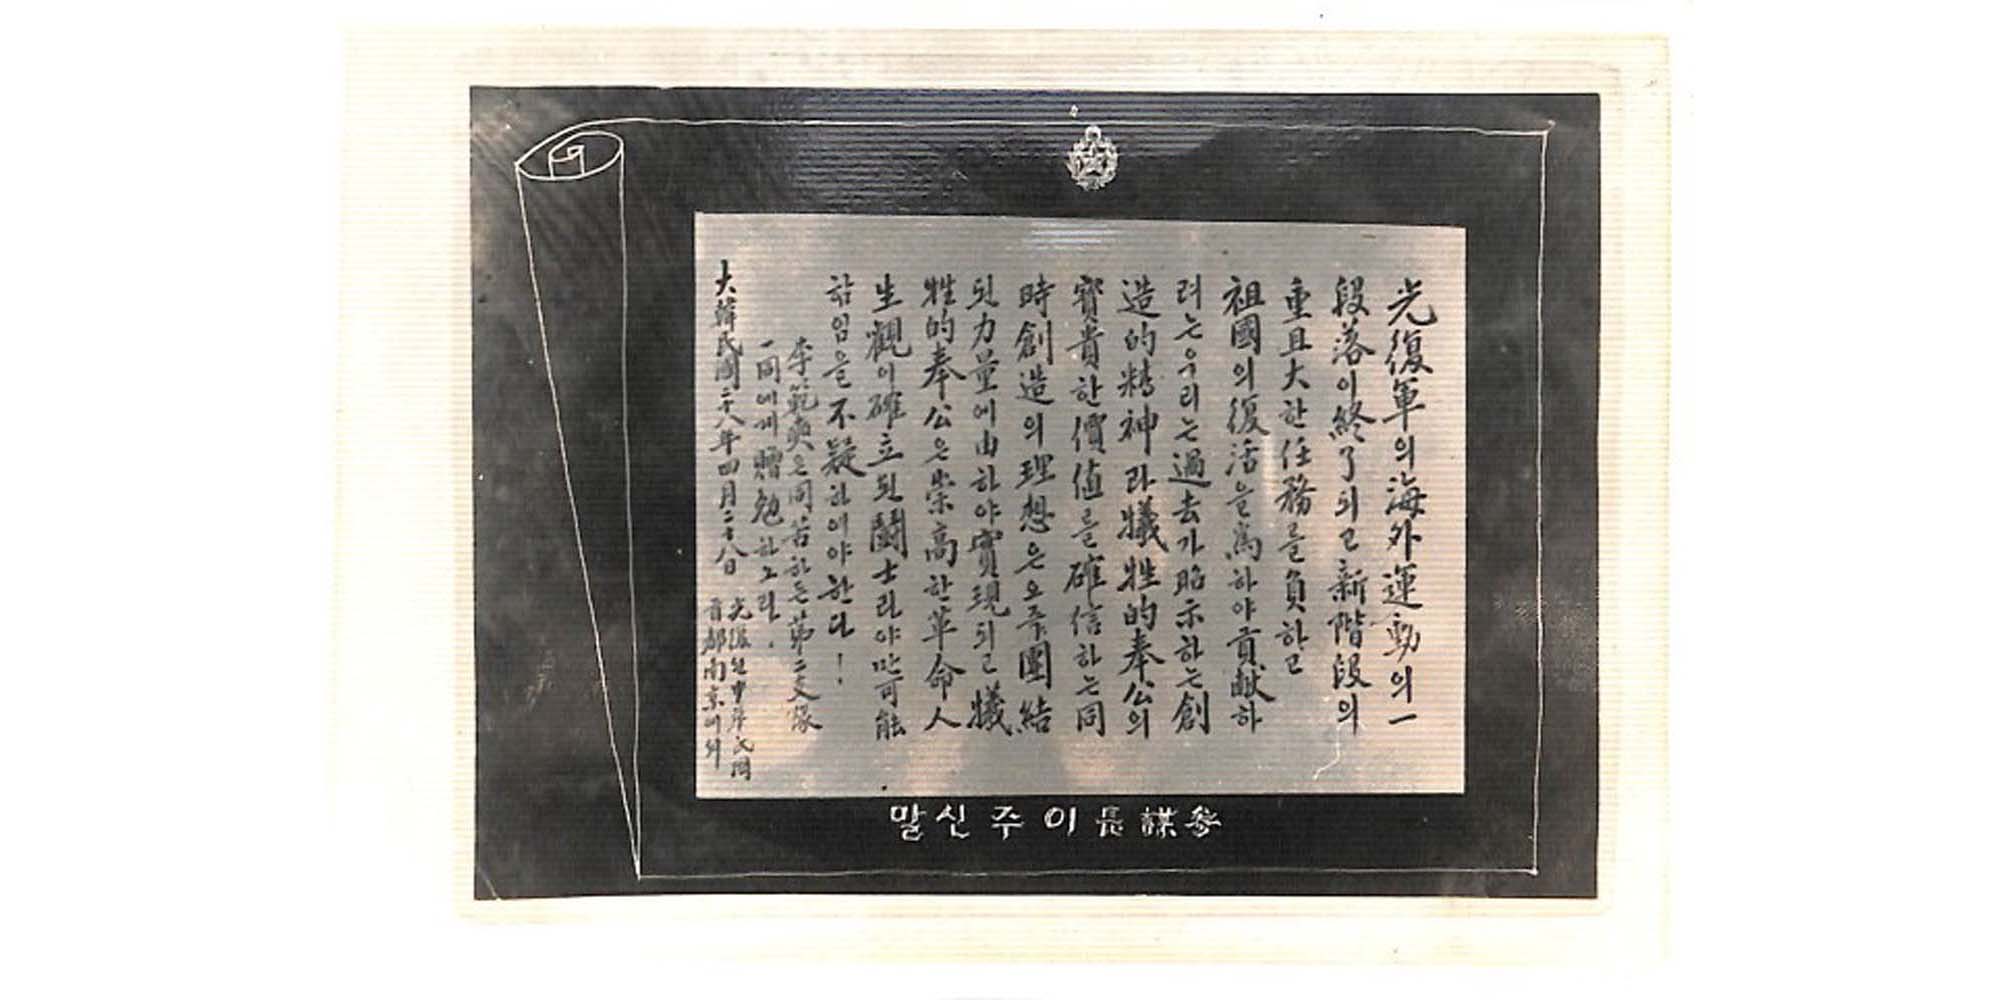 光復軍의海外運動의一
段落이終了되고新階段의
重且大한任務를負하고
祖國의復活을爲하야貢献하
려는우리는過去가昭示하는創
造的精神과犧牲的奉公의
寶貴한價値를確信하는同
時創造의理想은오주團結
된力量에由하야實現되고犧
牲的奉公은崇高한革命人
生觀이確立된鬪士라야만可能
함임을不疑하여야한다!
李範奭은同苦하든第二支隊
一同에게贈勉하노라.
大韓民國二十八年四月二十八日
光復軍中華民國
首都南京에서
參謀長이주신말